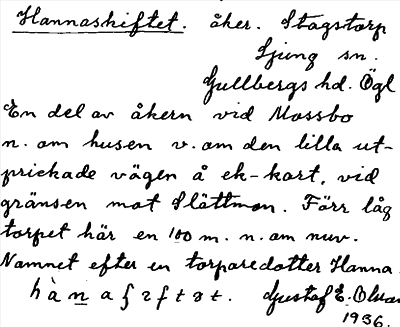 Hannaskiftet. åker. Stagstorp
Ljung sn.
Gullbergs hd. Ögl
En del av åkern vid Mossbo
n. om husen v. om den lilla ut-
prickade vägen å ek-kart, vid
gränsen mot Slättmon. Förr låg
torpet här en 100 m. n. om nuv.
Namnet efter en torparedotter Hanna.
Gustaf E. Olsson
1936.